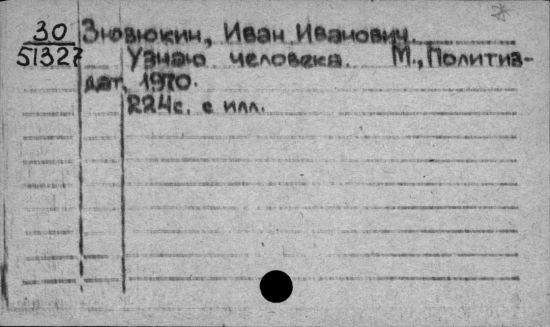 30 Зновюкин, Иван Иванович.
51327 Узнаю человека. М., Политиз-
дат, 1970.
224с. с илл.